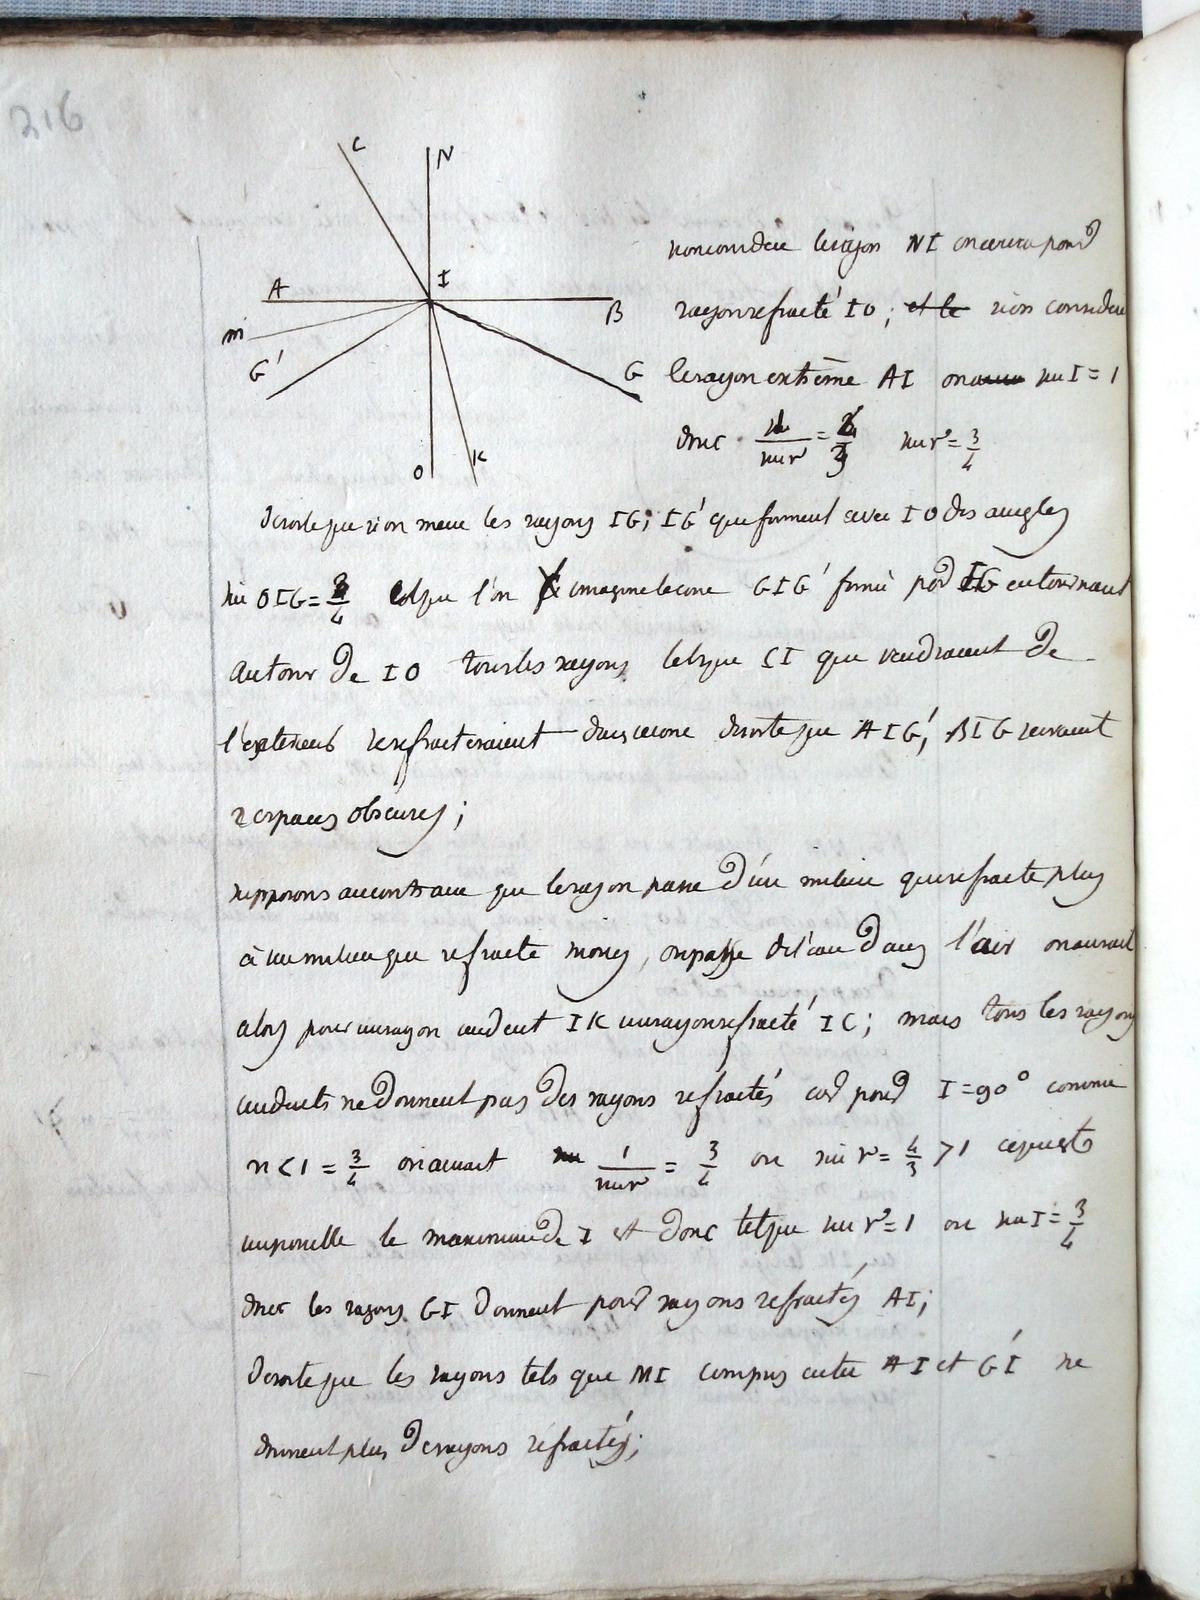 216
C N
A I B
M
G' G
O K
si on considere le rayon NI on aura pour
rayon refracté IO ; et le si on considere
le rayon extrême AI on aura sin I = 1
donc 1/sin r = 4/3 sin r = 3/4
de sorte que si on mene les rayons IG, IG' qui forment avec IO des angles
sin OIG = 3/4 et que l'on imagine le cone GIG' formé par IG en tournant
autour de IO tous les rayons tels que CI qui viendraient de
l'exterieur se refracteraient dans ce cone de sorte que AIG', BIG seraient
2 espaces obscurs ;
supposons au contraire que le rayon passe d'un milieu qui refracte plus
à un milieu qui refracte moins, on passe de l'eau dans l'air on aurait
alors pour un rayon incident IK un rayon refracté IC ; mais tous les rayons
incidents ne donnent pas des rayons refractés car pour I = 90° comme
n < 1 = 3/4 on aurait sin 1/sin r = 3/4 ou sin r = 4/3 > 1 ce qui est
impossible le maximum de I est donc tel que sin r = 1 ou sin I = 3/4
donc les rayons GI donnent pour rayons refractés AI ;
de sorte que les rayons tels que MI compris entre AI et G'I ne
donnent plus de rayons refractés ;